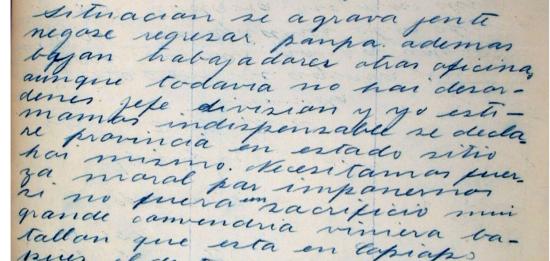 situacion se agrava jente
negose regresar panpa. ademas
bajan trabajadores otras oficinas
aunque todavia no hai desor-
denes jefe division y yo esti-
mamos indispensable se decla-
re provincia en estado sitio
hoi mismo. Necesitamos fuer-
za moral par imponernos
si no fuera un sacrificio mui
grande convendria viniera ba-
tallon que esta en Copiapo
pues el